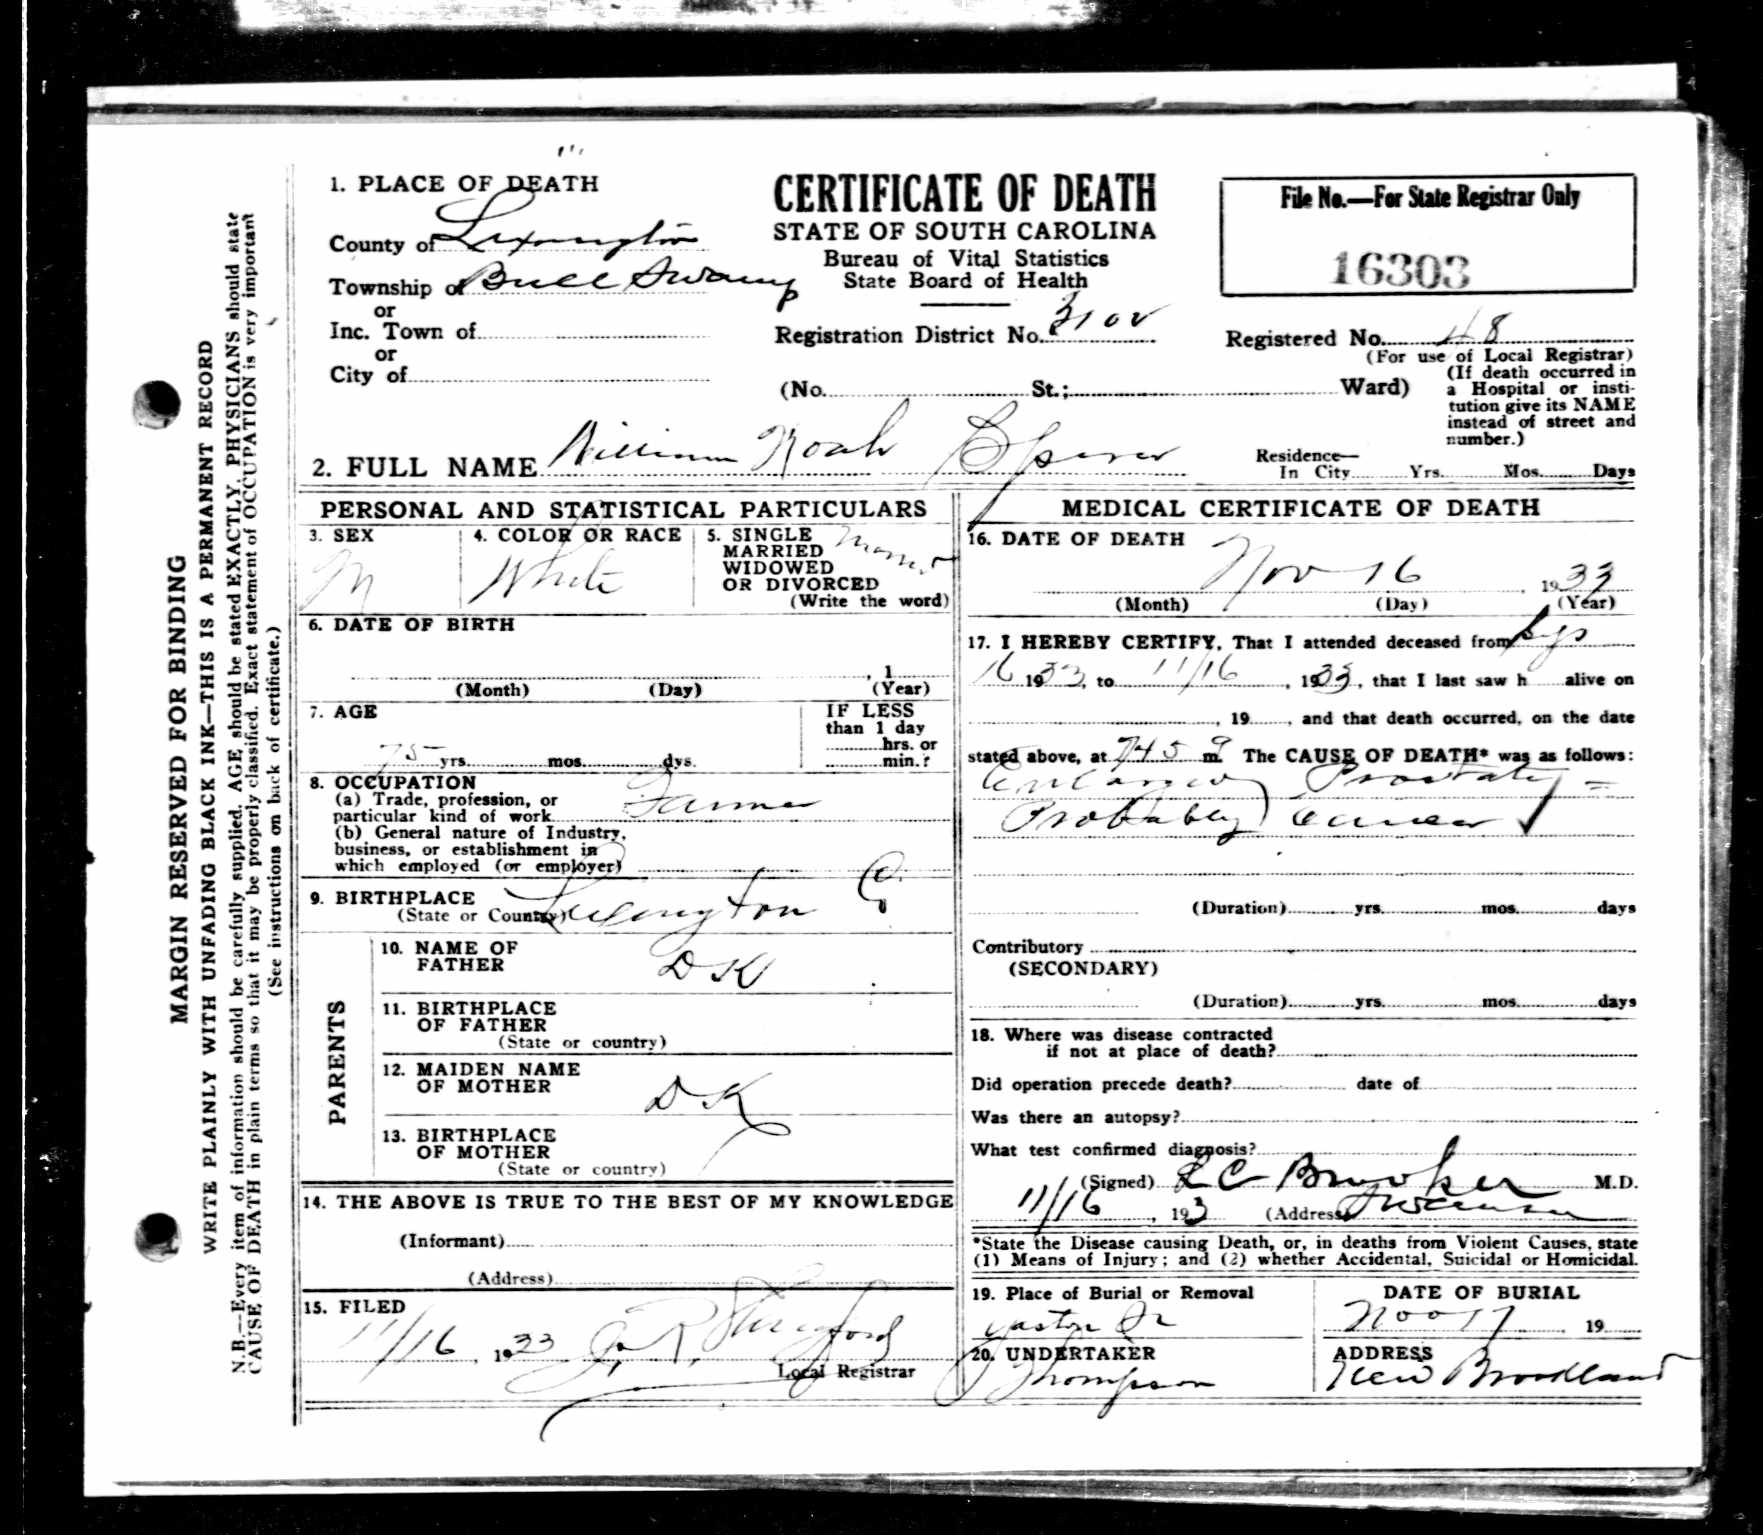 1. PLACE OF DEATH
County of Lexington
Township of Bull Swamp
or
Inc. Town of
or
City of
CERTIFICATE OF DEATH
STATE OF SOUTH CAROLINA
Bureau of Vital Statistics
State Board of Health
Registration District No. 3102
(No. St.; Ward)
File No.—For State Registrar Only
16303
Registered No. 48
(For use of Local Registrar)
(If death occurred in
a Hospital or insti-
tution give its NAME
instead of street and
number.)
2. FULL NAME William Noah
Residence—
In City Yrs. Mos. Days
PERSONAL AND STATISTICAL PARTICULARS
3. SEX
M
4. COLOR OR RACE
White
5. SINGLE
MARRIED
WIDOWED
OR DIVORCED
(Write the word)
6. DATE OF BIRTH
, 1
(Month) (Day) (Year)
7. AGE
75 yrs. mos. dys.
IF LESS
than 1 day
hrs. or
min.?
8. OCCUPATION
(a) Trade, profession, or
particular kind of work Farmer
(b) General nature of Industry,
business, or establishment in
which employed (or employer)
9. BIRTHPLACE
(State or Country) Lexington Co.
PARENTS
10. NAME OF
FATHER
DK
11. BIRTHPLACE
OF FATHER
(State or country)
12. MAIDEN NAME
OF MOTHER
DK
13. BIRTHPLACE
OF MOTHER
(State or country)
14. THE ABOVE IS TRUE TO THE BEST OF MY KNOWLEDGE
(Informant)
(Address)
15. FILED
11/16, 1933 J. R.
Local Registrar
MEDICAL CERTIFICATE OF DEATH
16. DATE OF DEATH
Nov 16, 1933
(Month) (Day) (Year)
17. I HEREBY CERTIFY, That I attended deceased from
16 1933, to 11/16, 1933, that I last saw h alive on
, 19 , and that death occurred, on the date
stated above, at 745 m. The CAUSE OF DEATH* was as follows:
Enlarged Prostate =
Probably cancer
(Duration) yrs. mos. days
Contributory
(SECONDARY)
(Duration) yrs. mos. days
18. Where was disease contracted
if not at place of death?
Did operation precede death? date of
Was there an autopsy?
What test confirmed diagnosis?
(Signed) L C Brooker M.D.
11/16, 193 (Address) Swansea
*State the Disease causing Death, or, in deaths from Violent Causes, state
(1) Means of Injury; and (2) whether Accidental, Suicidal or Homicidal.
19. Place of Burial or Removal
DATE OF BURIAL
Nov 17 19
20. UNDERTAKER
Thompson
ADDRESS
New Brookland
MARGIN RESERVED FOR BINDING
WRITE PLAINLY WITH UNFADING BLACK INK—THIS IS A PERMANENT RECORD
N.B.—Every item of information should be carefully supplied. AGE should be stated EXACTLY. PHYSICIANS should state
CAUSE OF DEATH in plain terms so that it may be properly classified. Exact statement of OCCUPATION is very important
(See instructions on back of certificate.)